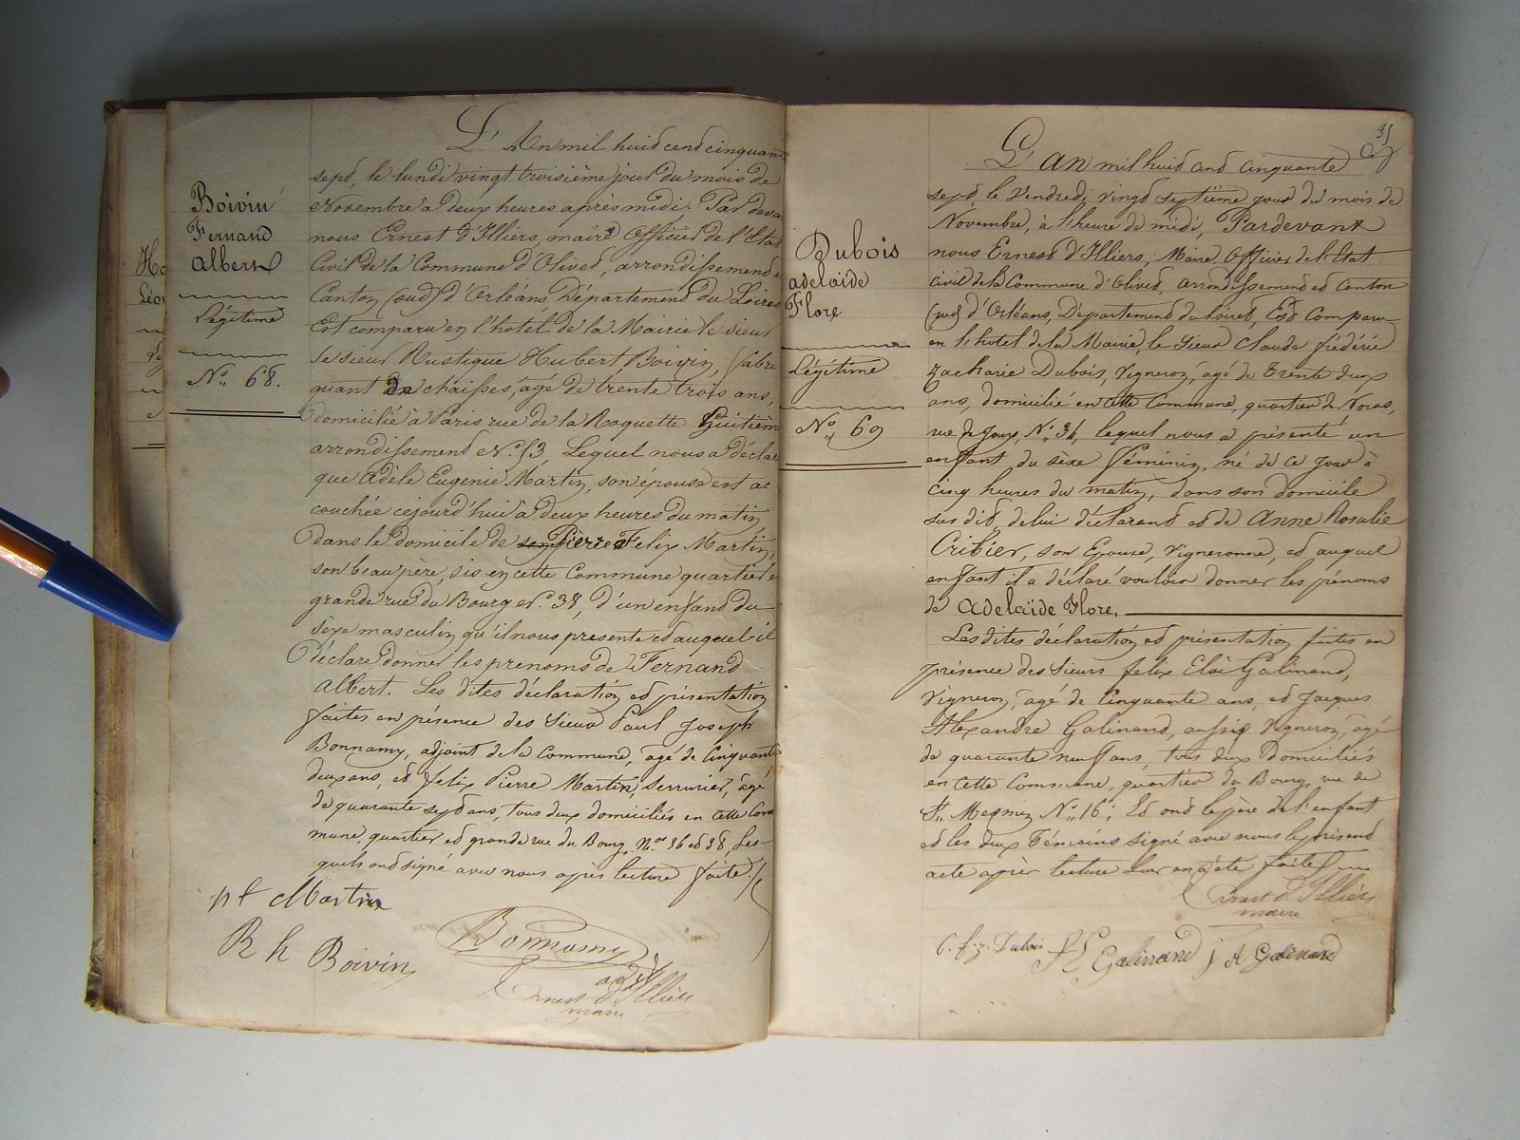 Boivin
Fernand
Albert
Légitime
No 68.
L'An mil huit cent cinquante
sept, le lundi vingt troisième jour du mois de
Novembre à deux heures après midi, Par deva
nous Ernest d'Illiers, maire Officier de l'Etat
Civil de la Commune d'Olivet, arrondissement et
Canton (sud) d'Orléans, Département du Loiret
Est comparu en l'hôtel de la Mairie le sieur
le sieur Rustique Hubert Boivin, fabri
quant de chaises, âgé de trente trois ans,
domicilié à Paris rue de la Roquette huitième
arrondissement No 13, Lequel nous a décla
que Adèle Eugénie Martin, son épouse est ac
couchée cejourd'hui à deux heures du matin
dans le domicile de Pierre Felix Martin,
son beau père, sis en cette Commune quartier et
grande rue du Bourg No 38, d'un enfant du
sexe masculin qu'il nous présente et auquel il
déclare donner les prénoms de Fernand
Albert. Les dites déclaration et présentation
faites en présence des Sieurs Paul Joseph
Bonnamy, adjoint de la Commune, âgé de Cinquante
deux ans, et Felix Pierre Martin, Serrurier, âgé
de quarante sept ans, tous deux domiciliés en cette Com
mune, quartier et grande rue du Bourg, Nos 36 et 38, Les
quels ont signé avec nous après lecture faite.
pf Martin
R h Boivin
Bonnamy
adj
Ernest d'Illiers
maire
35
Dubois
adelaïde
Flore
Légitime
No 69
L'an mil huit cent cinquante
sept le Vendredi vingt septième jour du mois de
Novembre, à l'heure de midi, Pardevant
nous Ernest d'Illiers, Maire Officier de l'Etat
civil de la Commune d'Olivet, arrondissement et canton
(sud) d'Orléans, Département du Loiret, Est Comparu
en l'hotel de la Mairie, le Sieur Claude frédéric
Zacharie Dubois, Vigneron, âgé de trente deux
ans, domicilié en cette Commune, quartier de
rue de No 36, lequel nous a présenté un
enfant du sèxe féminin, né de ce jour à
cinq heures du matin, dans son domicile
sus dit, de lui déclarant et de Anne Rosalie
Cribier, son Epouse, Vigneronne, et auquel
enfant il a déclaré vouloir donner les prénoms
de Adelaïde Flore.
Les dites déclaration et présentation faites en
présence des Sieurs felix Eloi Galinand,
Vigneron, âgé de Cinquante ans, et Jacques
Alexandre Galinand, aussi Vigneron, âgé
de quarante neuf ans, tous deux Domiciliés
en cette Commune, quartier du Bourg, rue de
St. Mesmin No 16; Et ont le père de l'enfant
et les deux Témoins signé avec nous le présent
acte après lecture leur en a été faite
Ernest d'Illiers
maire
C. f. Z. Dubois
f E Galinand
J A Galinand